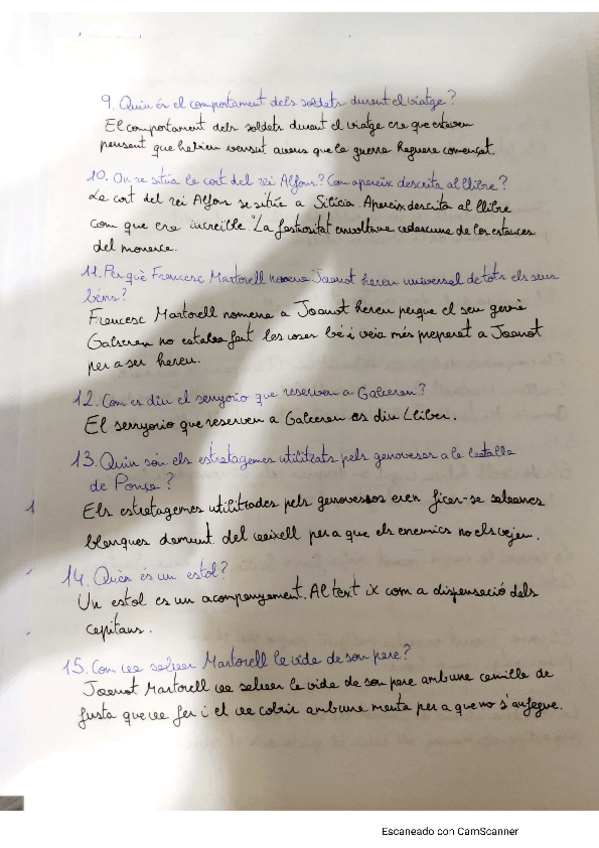 9. Quin és el comportament dels soldats durant el viatge?
El comportament dels soldats durant el viatge era que estaven
pensant que havien vençut avans que la guerra haguera començat.
10. On se situa la cort del rei Alfons? Com apareix descrita al llibre?
La cort del rei Alfons se situa a Silícia. Apareix descrita al llibre
com que era increïble. "La fastuositat envoltava cadascuna de les estances
del monarca.
11. Per què Francesc Martorell nomena Joanot hereu universal de tots els seus
béns?
Francesc Martorell nomena a Joanot hereu perque el seu germà
Galceran no estaba fent les coses bé i veia més preparat a Joanot
per a ser hereu.
12. Com es diu el senyorio que reserven a Galceran?
El senyorio que reserven a Galceran es diu Llíber.
13. Quin són els estratagemes utilitzats pels genovesos a la batalla
de Ponça?
Els estratagemes utilitzades pels genovesos eren ficar-se
blanques damunt del vaixell per a que els enemics no els vejen.
14. Què és un estol?
Un estol es un acompanyament. Al text ix com a dispensació dels
capitans.
15. Com va salvar Martorell la vida de son pare?
Joanot Martorell va salvar la vida de son pare amb una camilla de
fusta que va fer i el va cobrir amb una manta per a que no s'aufegue.
Escaneado con CamScanner